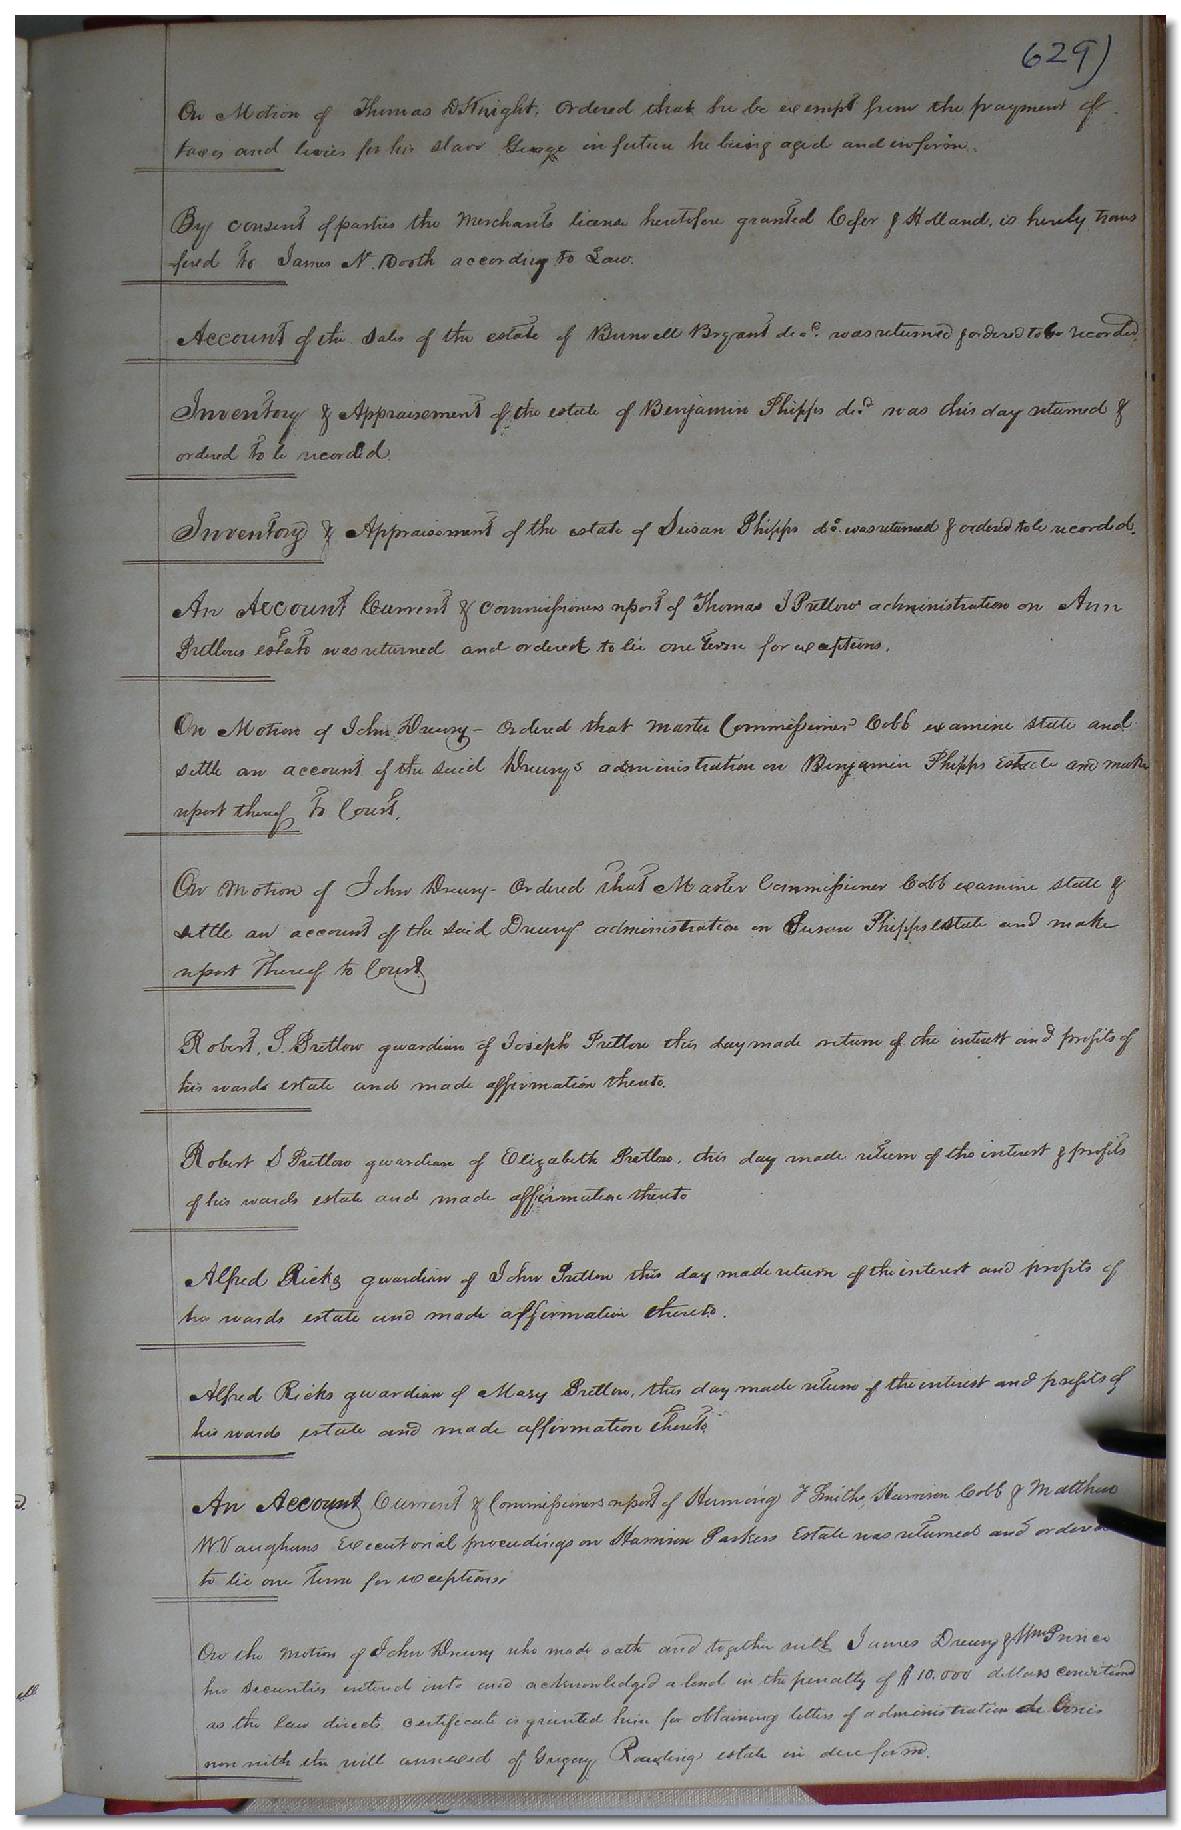 629)
On Motion of Thomas D Knight, ordered that he be exempt from the payment of
taxes and levies for his slave George in future he being aged and infirm.
By consent of parties the Merchants license heretofore granted Cofer & Holland, is hereby trans
fered to James N. Booth according to Law.
Account of the Sales of the estate of Burwell Bryant decd. was returned & ordered to be recorded.
Inventory & Appraisement of the estate of Benjamin Phipps decd was this day returned &
ordered to be recorded.
Inventory & Appraisement of the estate of Susan Phipps dec. was returned & ordered to be recorded.
An Account Current & commissioners report of Thomas J Pretlow administration on Ann
Pretlows estate was returned and ordered to lie one term for exceptions.
On Motion of John Drewry - ordered that Master Commissioner Cobb examine state and
settle an account of the said Drewrys administration on Benjamin Phipps Estate and make
report thereof to Court.
On motion of John Drewry - ordered that Master Commissioner Cobb examine state &
settle an account of the said Drewry administration on Susan Phipps estate and make
report thereof to Court
Robert, S. Pretlow guardian of Joseph Pretlow this day made return of the interest and profits of
his wards estate and made affirmation thereto.
Robert S Pretlow guardian of Elizabeth Pretlow, this day made return of the interest & profits
of his wards estate and made affirmation thereto
Alfred Ricks guardian of John Pretlow this day made return of the interest and profits of
his wards estate and made affirmation thereto.
Alfred Ricks guardian of Mary Pretlow, this day made return of the interest and profits of
his wards estate and made affirmation thereto
An Account Current & Commissioners report of Smith, Harrison Cobb & Matthew
W Vaughans Executorial proceedings on Harrison Parkers Estate was returned and ordered
to lie one term for exceptions.
On the motion of John Drewry who made oath and together with James Drewry & Wm Prince
his securities entered into and acknowledged a bond in the penalty of $ 10.000 dollars conditioned
as the law directs, certificate is granted him for obtaining letters of administration de bonis
non with the will annexed of Gregory Rawlings estate in due form.